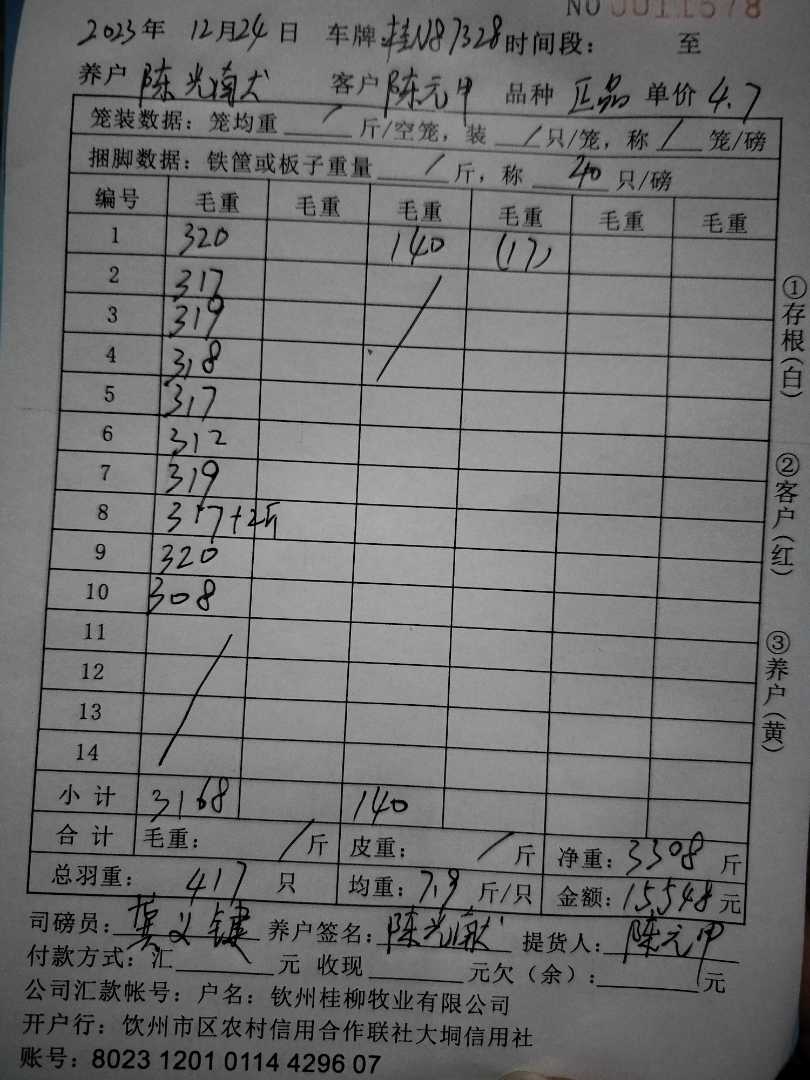 NO 0011578
2023年 12月24日 车牌 桂N87328 时间段： 至
养户 陈光南犬 客户 陈元甲 品种 正品 单价 4.7
笼装数据：笼均重 / 斤/空笼，装 / 只/笼，称 / 笼/磅
捆脚数据：铁筐或板子重量 / 斤，称 40 只/磅
编号 毛重 毛重 毛重 毛重 毛重 毛重
1 320 140 (17)
2 317
3 319
4 318
5 317
6 312
7 319
8 317+2斤
9 320
10 308
11
12
13
14
小计 3168 140
合计 毛重： / 斤 皮重： / 斤 净重：3308 斤
总羽重： 417 只 均重：7.9 斤/只 金额：15,548 元
司磅员： 义键 养户签名：陈光南犬 提货人：陈元甲
付款方式：汇 元 收现 元欠（余）： 元
公司汇款帐号：户名：钦州桂柳牧业有限公司
开户行：钦州市区农村信用合作联社大垌信用社
账号：8023 1201 0114 4296 07
①存根（白）
②客户（红）
③养户（黄）